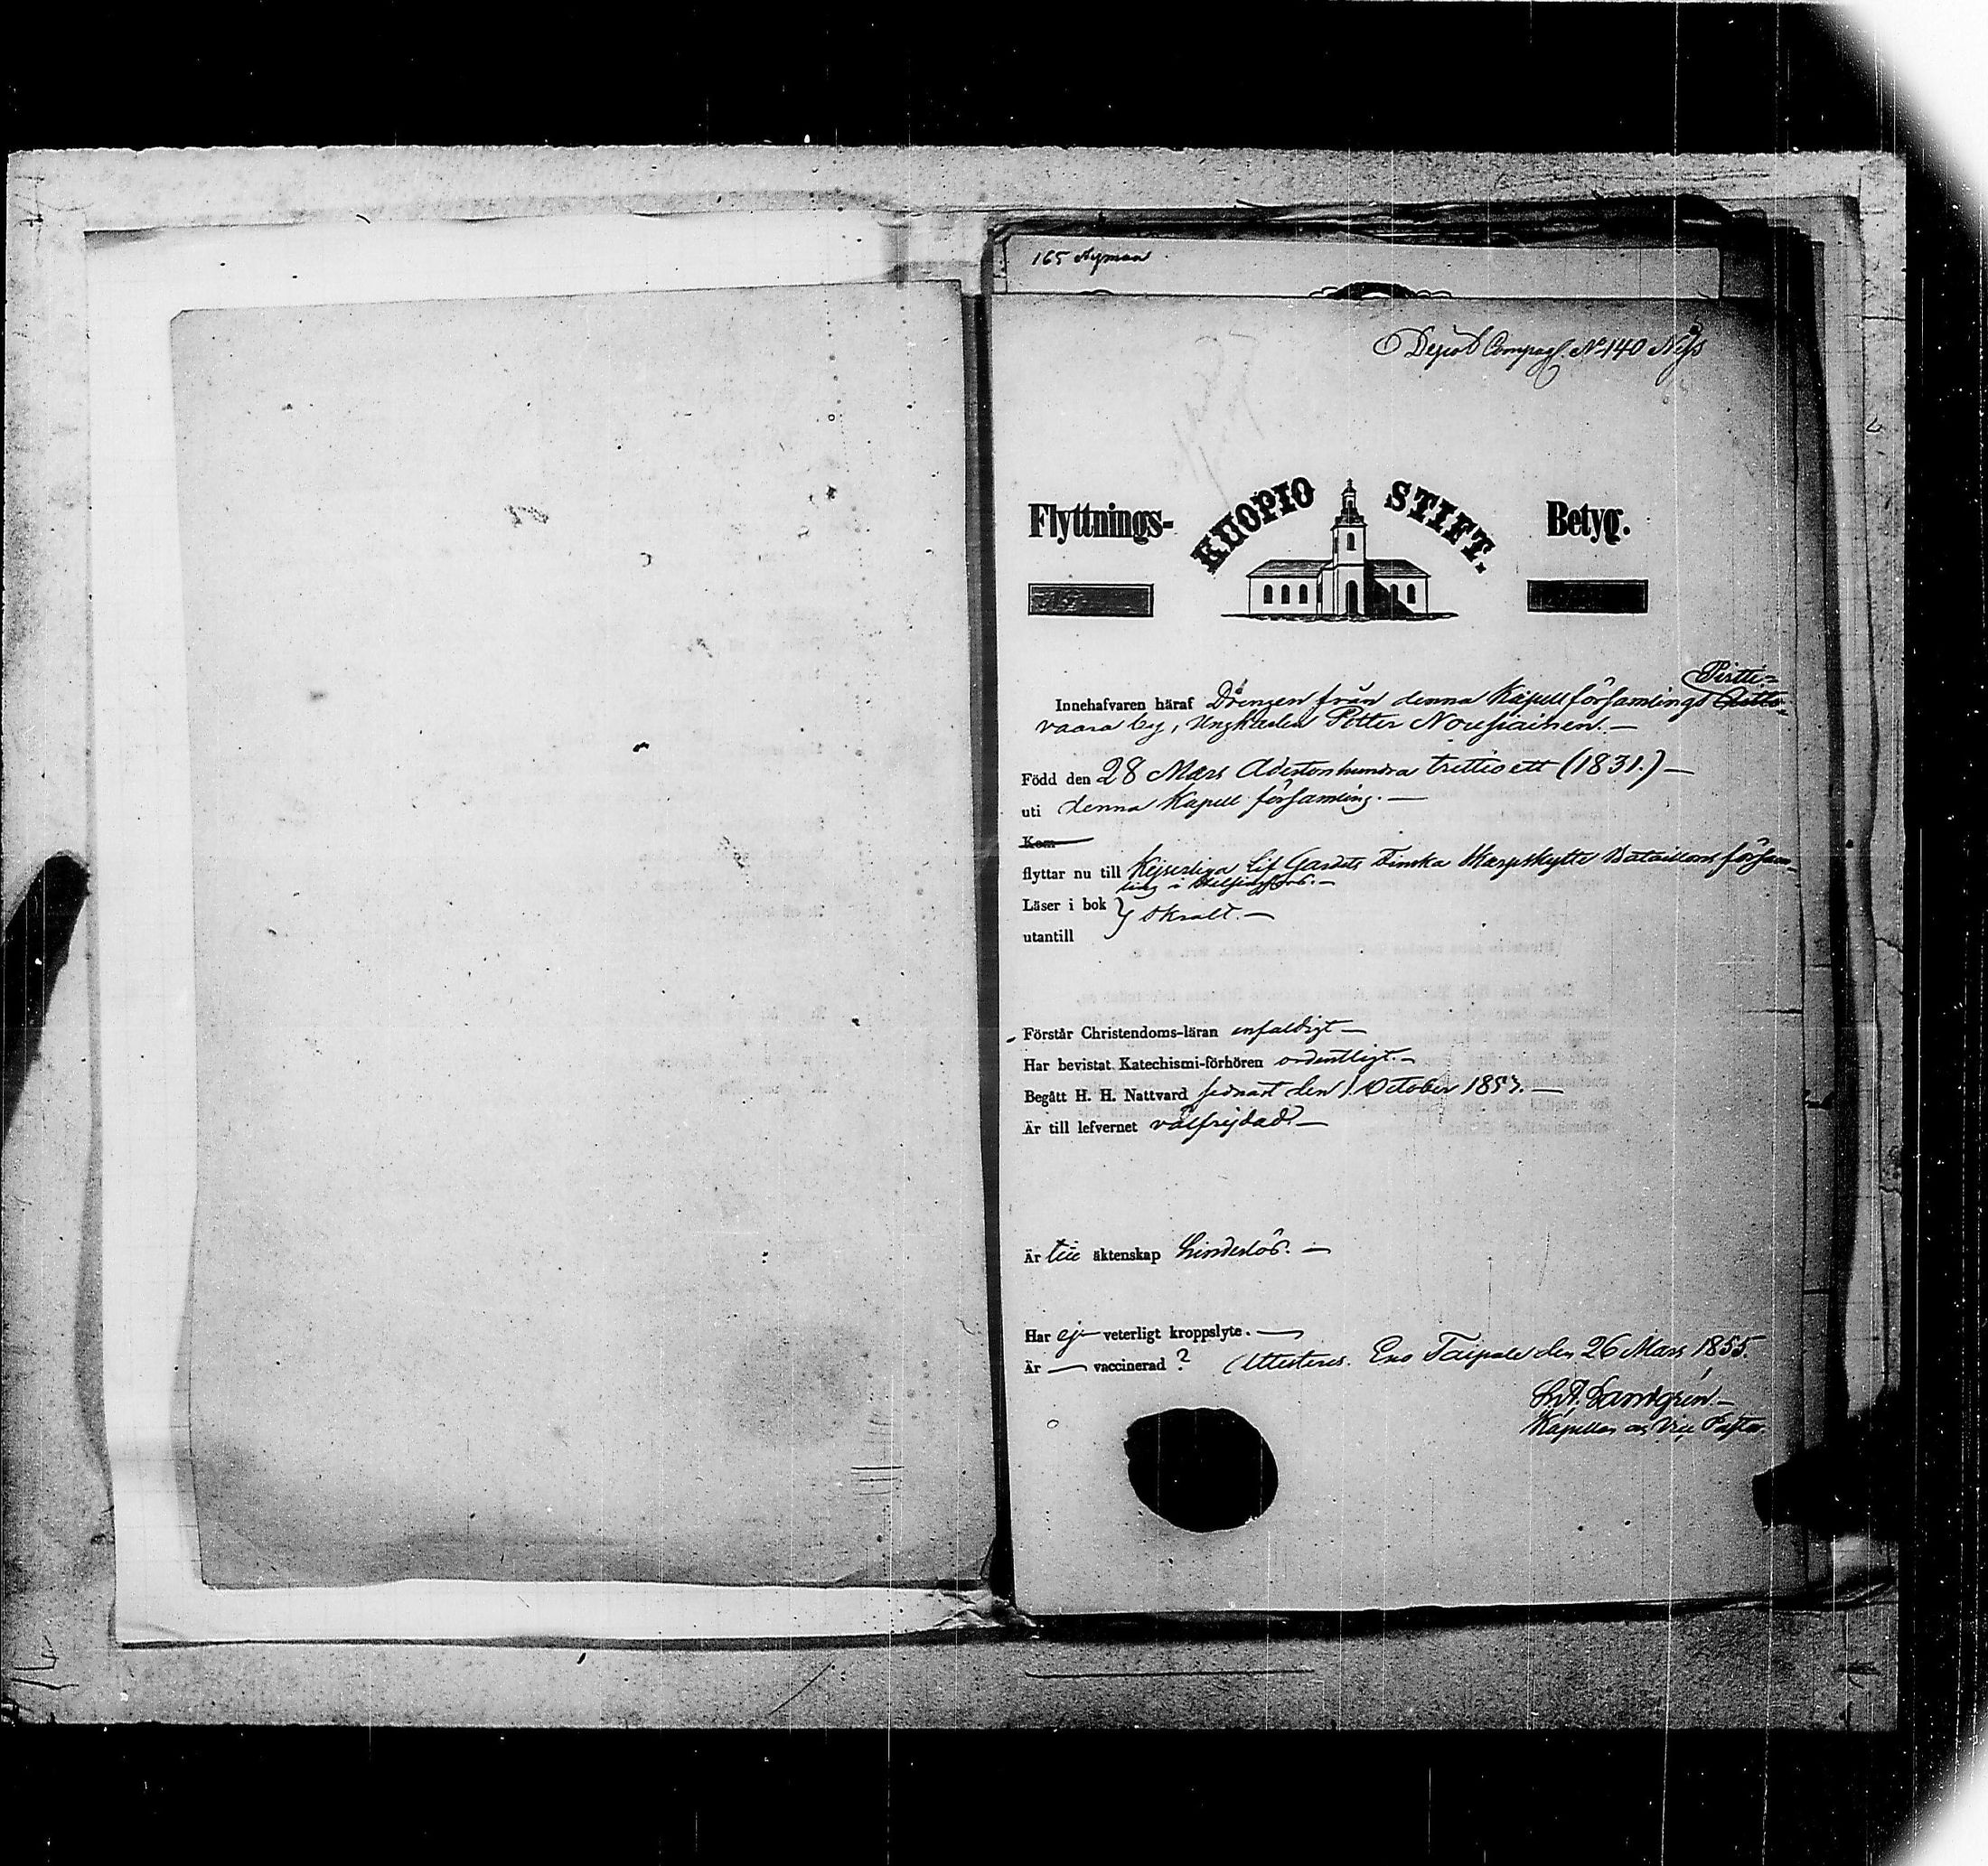 165 Nyman
Depot Compag. No 140 Niss
Flyttnings- KUOPIO STIFT. Betyg.
Pirtti=
Innehafvaren häraf Drengen från denna Kapellförsamlings
vaara by, Ungkarlen Petter Nousiainen. —
Född den 28 Mars Adertonhundra trettio ett (1831.) —
uti denna Kapell församling. —
Kom
flyttar nu till Kejserliga Lif Gardets Finska Skarpskytte Bataillons försam-
ling i Helsingfors. —
Läser i bok } skralt. —
utantill
Förstår Christendoms-läran enfaldigt —
Har bevistat Katechismi-förhören ordentligt. —
Begått H. H. Nattvard sednast den 1. October 1853. —
Är till lefvernet välfrejdad —
Är till äktenskap hinderlös. —
Har ej veterligt kroppslyte. —
Är — vaccinerad? Attesteras. Eno Taipale den 26 Mars 1855.
Landgrén. —
Kapellan och Vice Pastor.